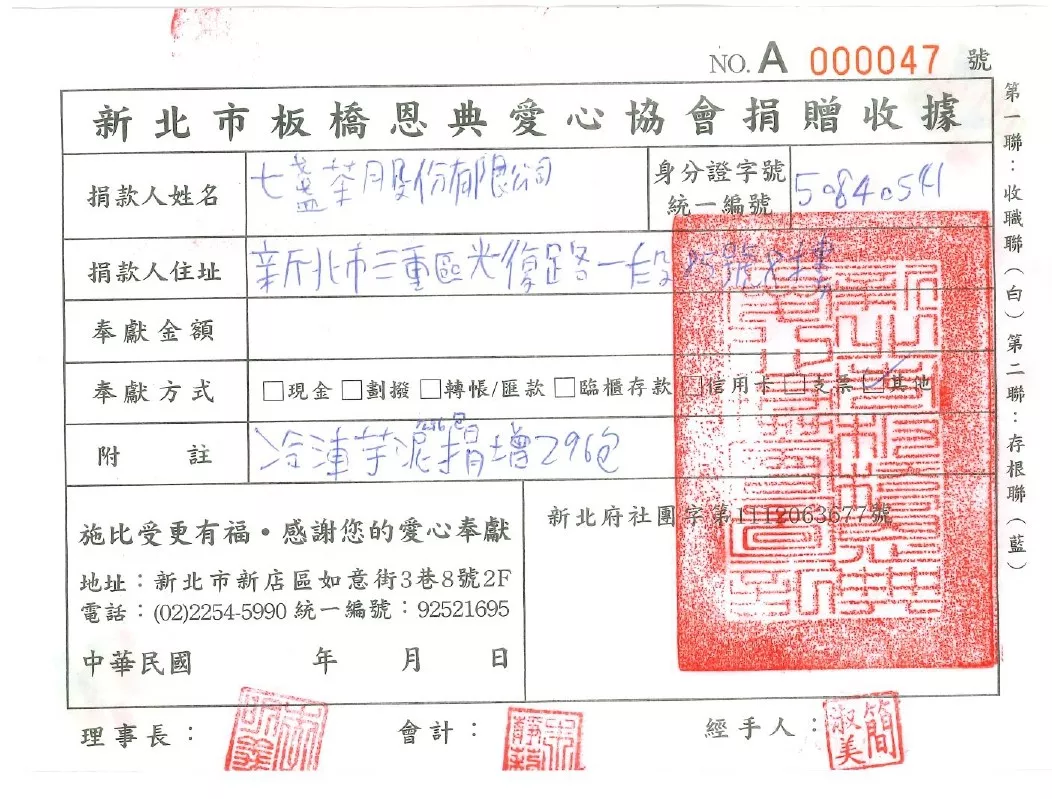 NO. A 000047 號
新北市板橋恩典愛心協會捐贈收據
捐款人姓名 七盞茶股份有限公司 身分證字號 統一編號 50840541
捐款人住址 新北市三重區光復路一段 號 樓
奉獻金額
奉獻方式 □現金 □劃撥 □轉帳/匯款 □臨櫃存款 □信用卡 □支票 □其他
附註 冷凍芋泥捐增296包
施比受更有福·感謝您的愛心奉獻
地址：新北市新店區如意街3巷8號2F
電話：(02)2254-5990 統一編號：92521695
中華民國 年 月 日
新北府社團字第1112063677號
理事長：
會計：
經手人：簡淑美
第一聯：收職聯（白）第二聯：存根聯（藍）